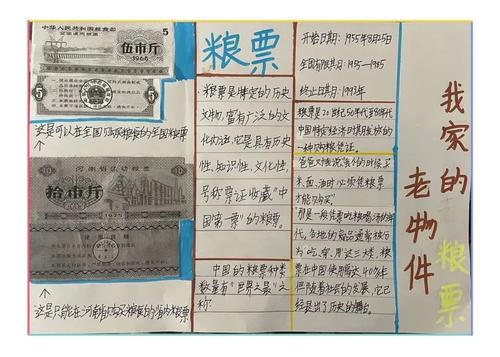 中华人民共和国粮食部
全国通用粮票
伍市斤
1966
5
5
这是可以在全国购买粮食的全国粮票
个
河南省流动粮票
10
10
拾市斤
1975
这是只能在河南省购买粮食的省内粮票
粮票
粮票是特定的历史
文物,富有广泛的文
化内涵,它是具有历史
性、知识性、文化性
号称票证收藏"中
国第一票"的粮票。
中国的粮票种类
数量有"世界之最"之
称
开始日期:1955年8月25日
全国有效期月:1955—1985
终止日期:1993年
粮票是20世纪50年代至80年代
中国特定经济时期发放的
一种购粮凭证。
米、面、油时必须凭粮票
才能购买。
那是一段凭票吃粮喝汤的年
代,各地的粮店通常被分
为"吃、穿、用"这三类,粮
票在中国使用长达40多年
但随着社会的发展,它已
经退出了历史的舞台。
我家的
老物件
粮票